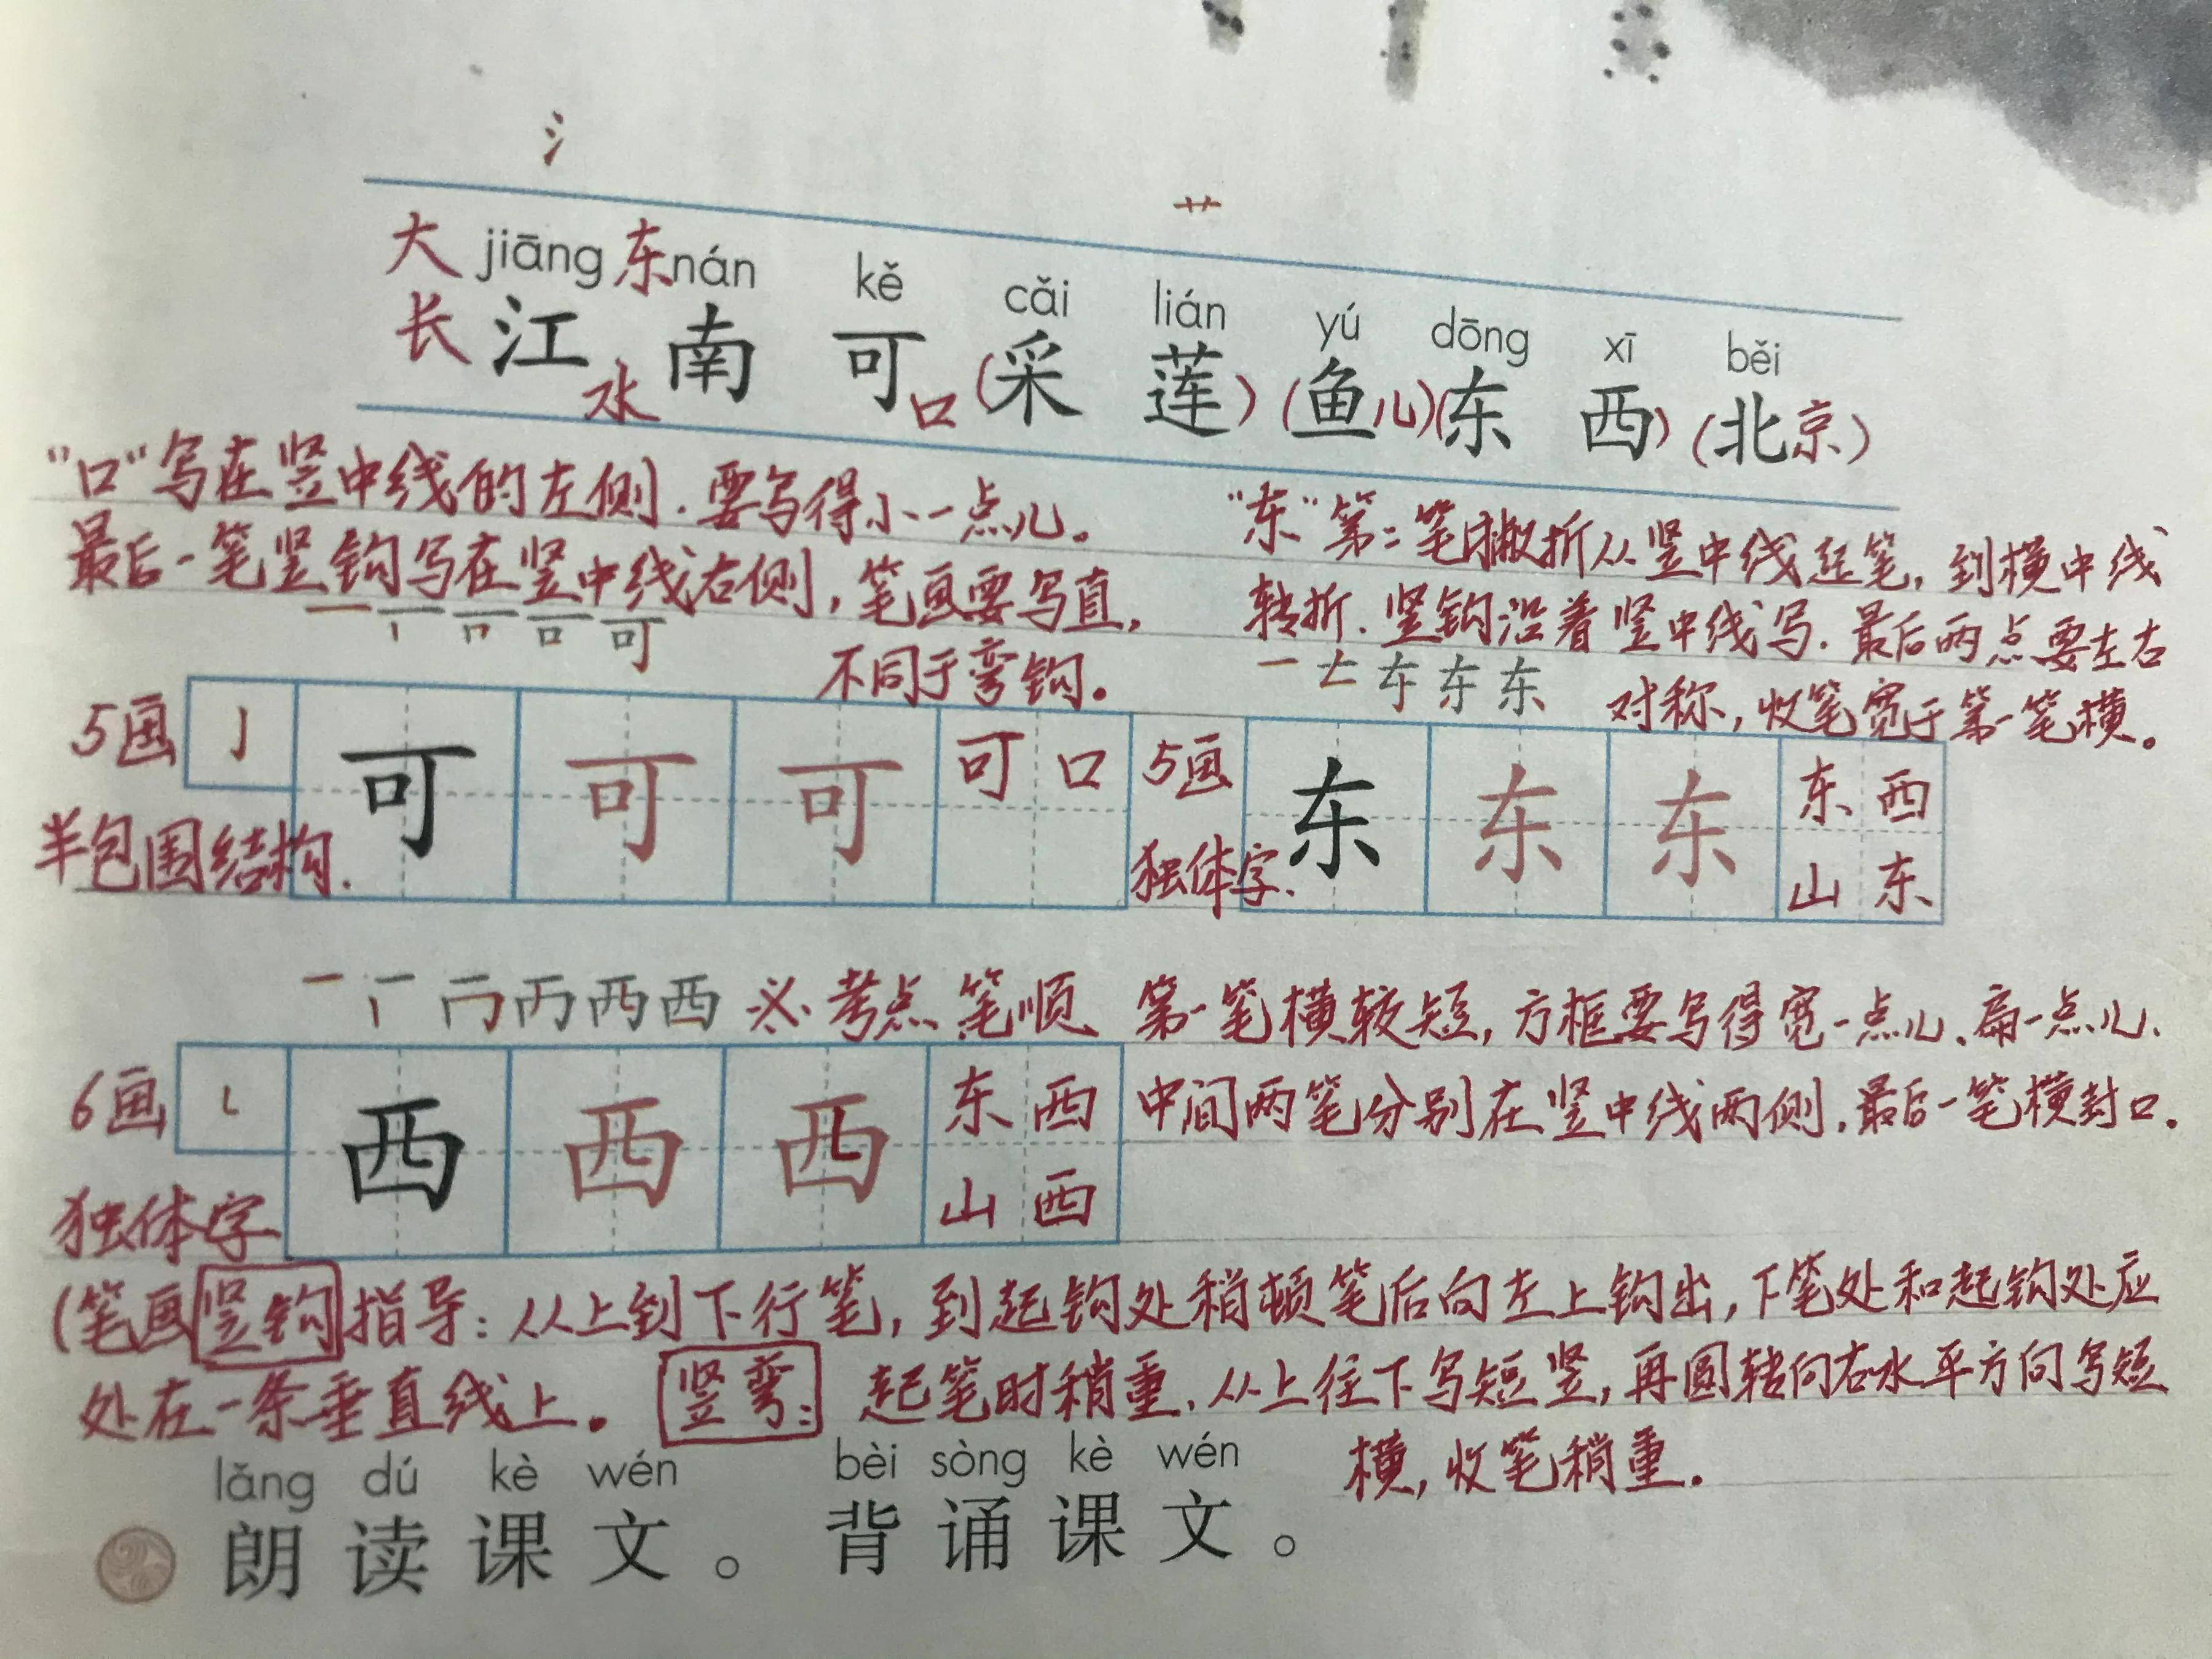 氵
艹
大 jiāng 东 nán kě cǎi lián yú dōng xī běi
长 江 水 南 可 口 (采 莲) (鱼 儿) (东 西) (北 京)
"口"写在竖中线的左侧.要写得小一点儿。
最后一笔竖钩写在竖中线右侧,笔画要写直,
不同于弯钩。
"东"第二笔撇折从竖中线起笔,到横中线
转折.竖钩沿着竖中线写.最后两点要左右
对称,收笔宽于第一笔横。
5画 亅 可 可 可 可 口
半包围结构.
5画 东 东 东 东 西
独体字. 山 东
西 必考点 笔顺
第一笔横较短,方框要写得宽一点儿、扁一点儿、
中间两笔分别在竖中线两侧.最后一笔横封口.
6画 ㇄ 西 西 西 东 西
独体字 山 西
(笔画竖钩指导:从上到下行笔,到起钩处稍顿笔后向左上钩出,下笔处和起钩处应
处在一条垂直线上。 竖弯: 起笔时稍重.从上往下写短竖,再圆转向右水平方向写短
横,收笔稍重.
lǎng dú kè wén bèi sòng kè wén
朗 读 课 文 。 背 诵 课 文 。